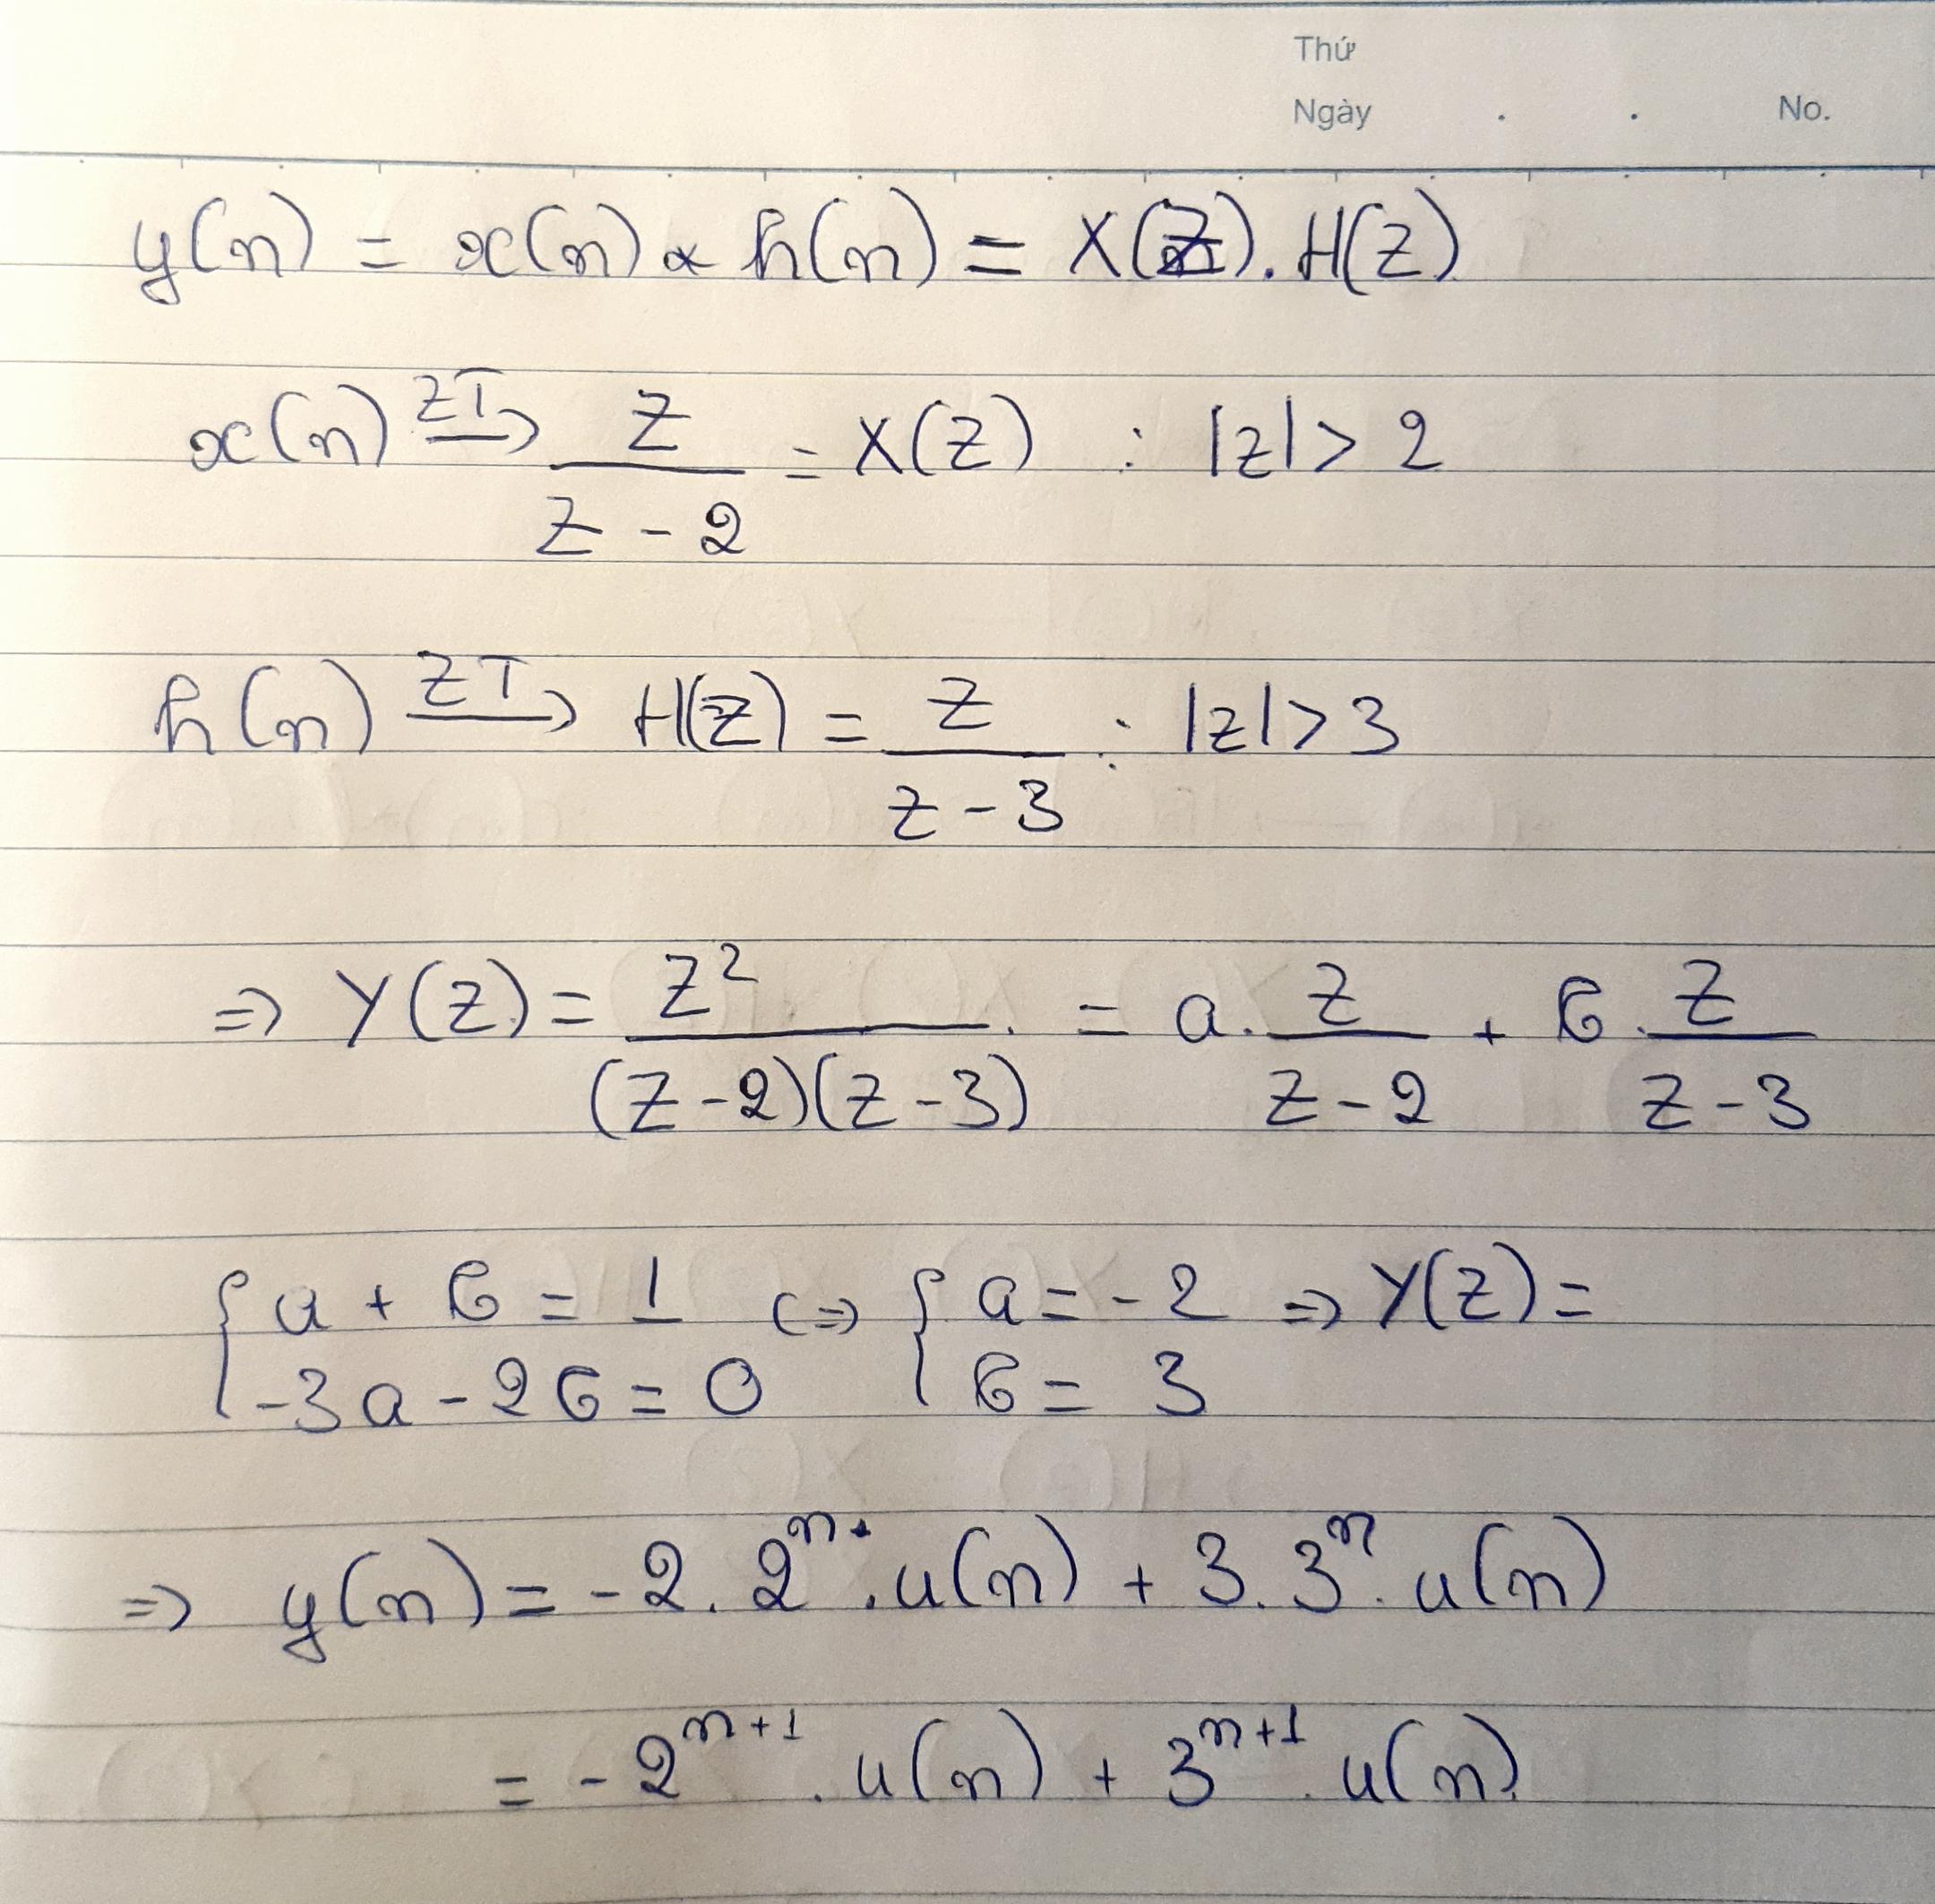 Thứ
Ngày . . No.
y(n) = x(n) * h(n) = X(Z) . H(Z)
x(n) ZT→ Z/(Z - 2) = X(Z) : |z| > 2
h(n) ZT→ H(Z) = Z/(Z - 3) : |z| > 3
=> Y(Z) = Z²/((Z - 2)(Z - 3)) = a. Z/(Z - 2) + b. Z/(Z - 3)
{ a + b = 1 <=> { a = - 2 => Y(Z) =
-3a - 2b = 0 b = 3
=> y(n) = - 2 . 2ⁿ . u(n) + 3 . 3ⁿ . u(n)
= - 2ⁿ⁺¹ . u(n) + 3ⁿ⁺¹ . u(n)